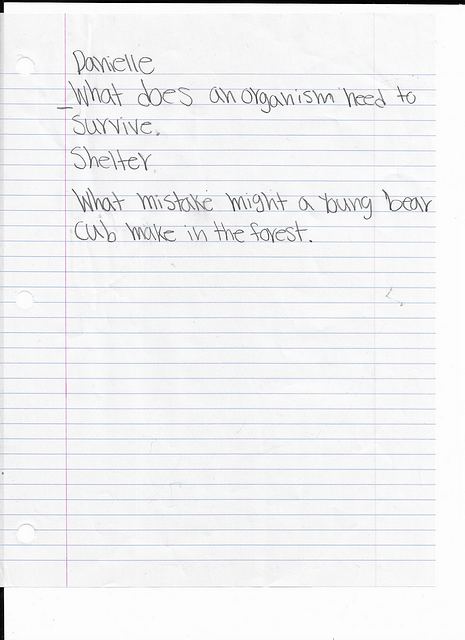 Danielle
What does an organism need to
Survive.
Shelter.
What mistake might a young bear
cub make in the forest.